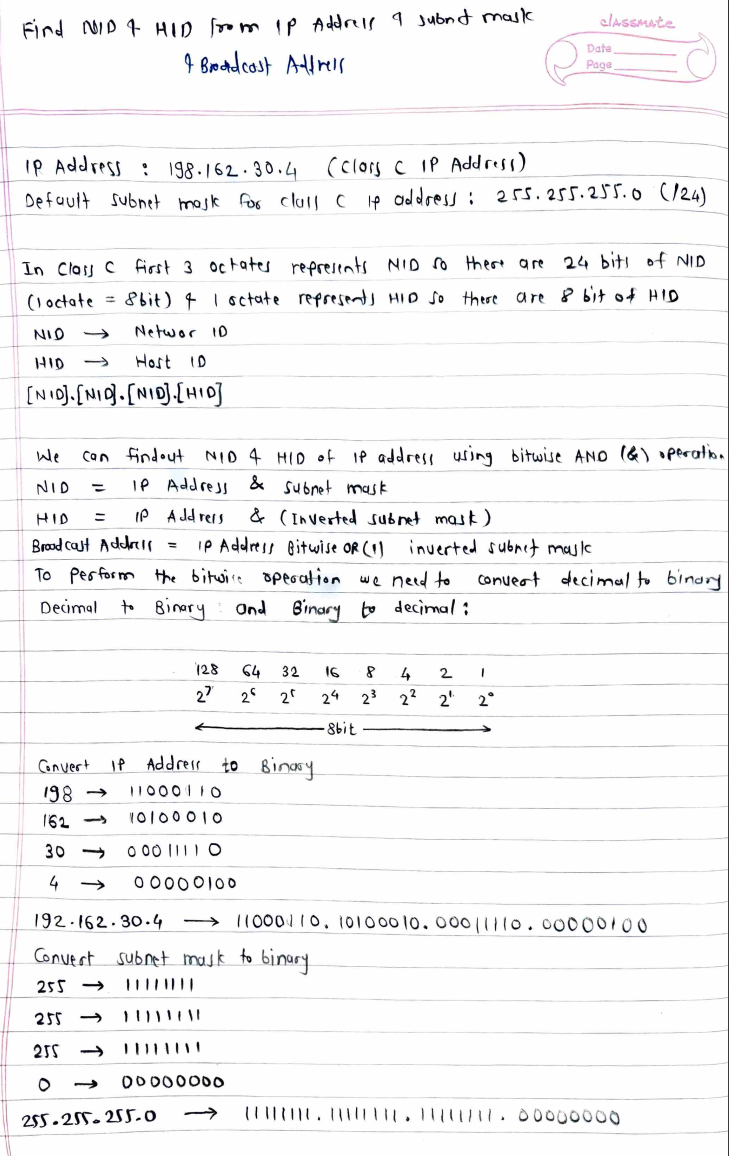 Find NID & HID from IP Address & subnet mask
& Broadcast Address
classmate
Date
Page
IP Address : 198.162.30.4 (Class C IP Address)
Default subnet mask for class C ip address : 255.255.255.0 (/24)
In Class C first 3 octates represents NID so there are 24 bits of NID
(1 octate = 8bit) & 1 octate represents HID so there are 8 bit of HID
NID → Networ ID
HID → Host ID
[NID].[NID].[NID].[HID]
We can findout NID & HID of IP address using bitwise AND (&) operation.
NID = IP Address & subnet mask
HID = IP Address & (Inverted subnet mask)
Broadcast Address = IP Address Bitwise OR (|) inverted subnet mask
To Perform the bitwise operation we need to convert decimal to binary
Decimal to Binary and Binary to decimal :
128 64 32 16 8 4 2 1
2⁷ 2⁶ 2⁵ 2⁴ 2³ 2² 2¹ 2⁰
8bit
Convert IP Address to Binary
198 → 11000110
162 → 10100010
30 → 00011110
4 → 00000100
192.162.30.4 → 11000110.10100010.00011110.00000100
Convert subnet mask to binary
255 → 11111111
255 → 11111111
255 → 11111111
0 → 00000000
255.255.255.0 → 11111111.11111111.11111111.00000000